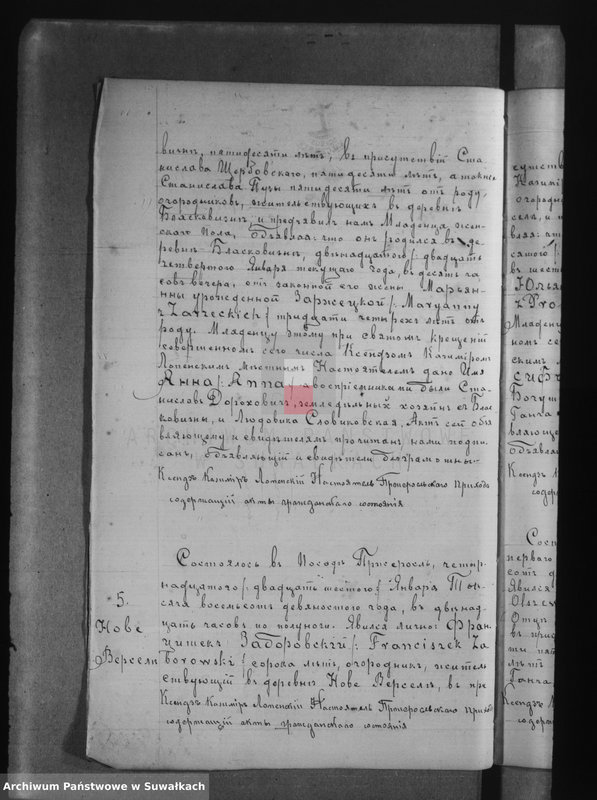 вичи, пятидесяти лѣтъ, въ присутствіи Ста-
нислава Щербовскаго, пятидесяти лѣтъ, а также
Станислава пятидесяти лѣтъ отъ роду,
огородниковъ, жительствующихъ въ деревнѣ
Бласковизнѣ, и предъявилъ намъ Младенца жен-
скаго пола, объявляя: что онъ родился въ де-
ревнѣ Бласковизнѣ, двѣнадцатаго /: двадцать
четвертого Января текущаго года, въ десять ча-
совъ вечера, отъ законной его жены Марьян-
ны урожденной Заржецкой /: Maryanny
z Zarzeckich / тридцати четырехъ лѣтъ отъ
роду. Младенцу этому при святомъ крещеніи
совершенномъ сего числа Ксендзомъ Казиміромъ
Лопенскимъ мѣстнымъ Настоятелемъ дано имя
Анна /: Anna / а воспріемниками были Ста-
ниславъ Дороховичъ, земледѣльныхъ хозяинъ съ Блас-
ковизны, и Людовика Словиковская. Актъ сей объ
являющему и свидѣтелямъ прочитанъ, нами подпи-
санъ, объявляющій и свидѣтели безграмотны.
Ксендзъ Казиміръ Лопенскій Настоятель Пржеросльскаго Прихода
содержащій акты гражданскаго состоянія
Состоялось въ Посадѣ Пржеросль, четыр-
надцатого /: двадцать шестого / Января Ты-
5.
сяча восемьсотъ девяностого года, въ двѣнад-
цать часовъ по полуночи. Явился лично: Фран-
Нове
цишекъ Заборовскій /: Franciszek Za
Версели
borowski / сорока лѣтъ, огородникъ, житель
ствующій въ деревнѣ Нове Версели, въ при
Ксендзъ Казиміръ Лопенскій Настоятель Пржеросльскаго Прихода
содержащій акты гражданскаго состоянія
Казимі
огородни
сель, и
вляя: чт
сатого /
въ шест
Юлья
z Pro
Младенц
номъ се
скимъ
Ганча
вляюще
объявля
Ксендзъ К
содерж
Сост
перваго
Явился
Olszew
въ прис
лѣтъ
Ганча
Ксендзъ
содерж
Archiwum Państwowe w Suwałkach